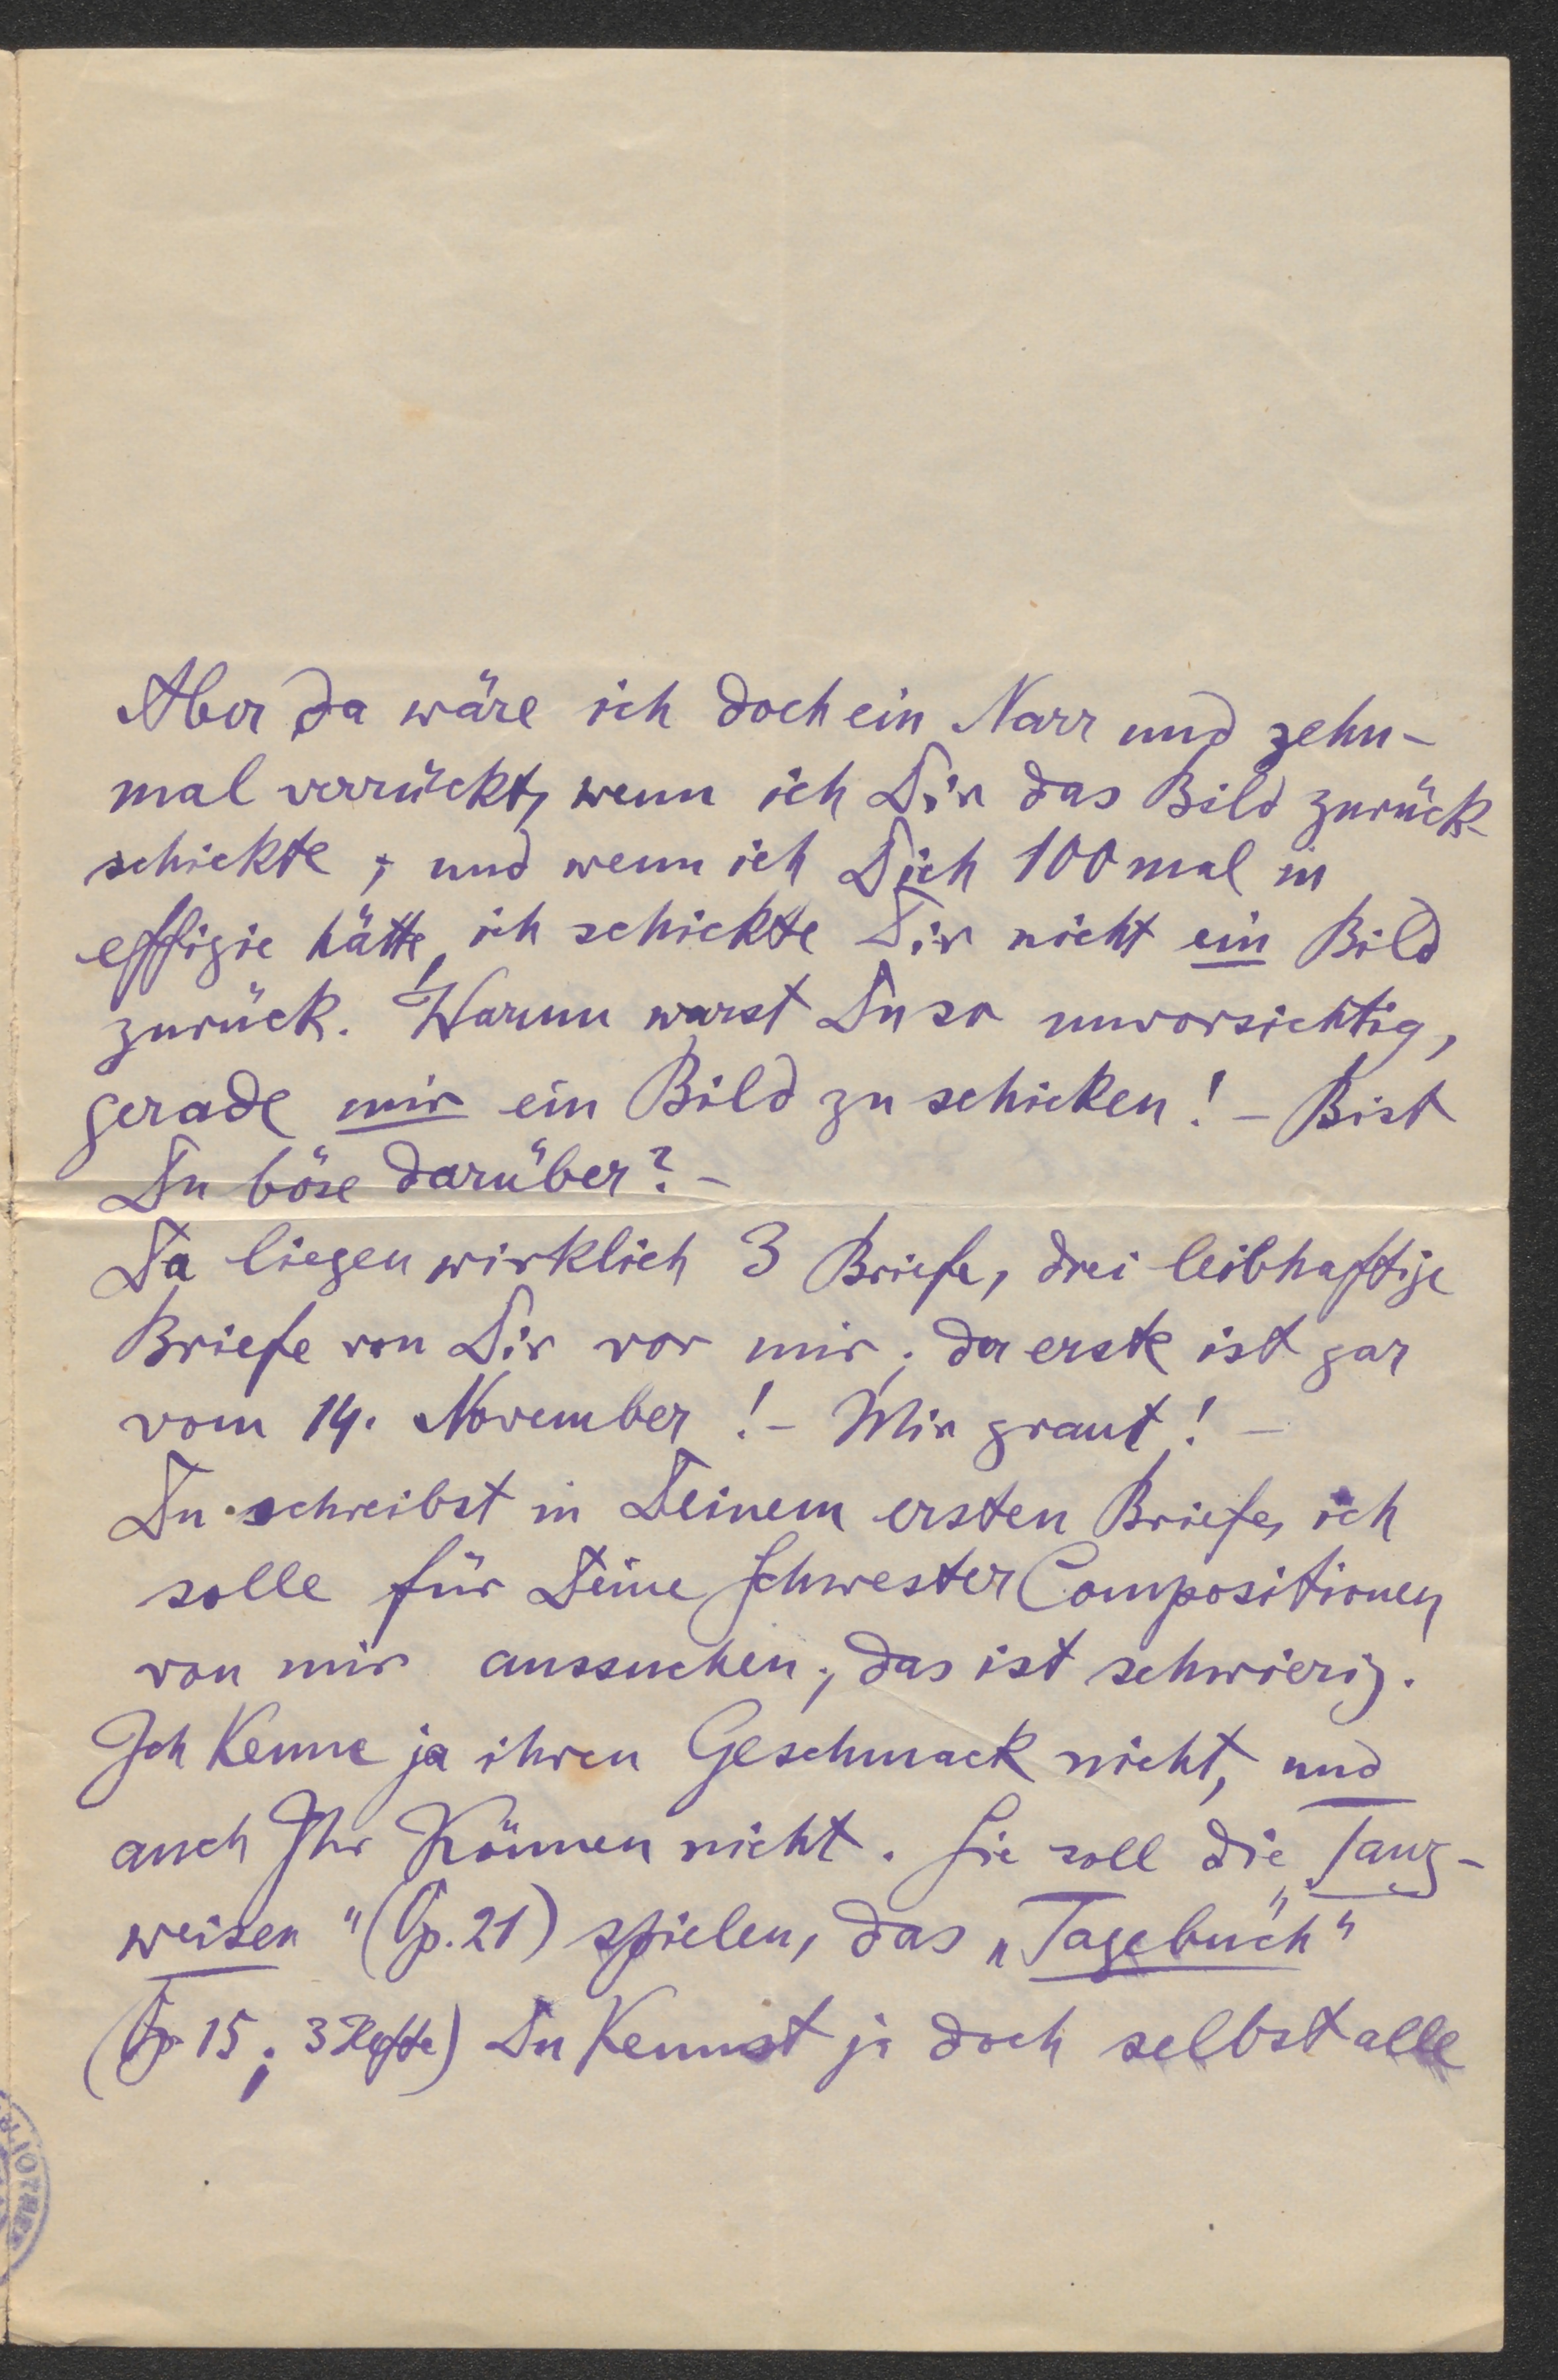 Aber da wäre ich doch ein Narr und zehn-
mal verrückt, wenn ich Dir das Bild zurück-
schickte; und wenn ich Dich 100mal in
effigie hätte, ich schickte Dir nicht ein Bild
zurück. Warum warst Du so unvorsichtig,
gerade mir ein Bild zu schicken! – Bist
Du böse darüber? –
Da liegen wirklich 3 Briefe, drei leibhaftige
Briefe von Dir vor mir; der erste ist gar
vom 14. November! – Mir graut! –
Du schreibst in Deinem ersten Briefe, ich
solle für Deine Schwester Compositionen
von mir aussuchen; das ist schwierig.
Ich Kenne ja ihren Geschmack nicht, und
auch Ihr Können nicht. Sie soll die „Tanz-
weisen" (Op. 21) spielen, das „Tagebuch"
(Op 15; 3 Hefte) Du Kennst ja doch selbst alle